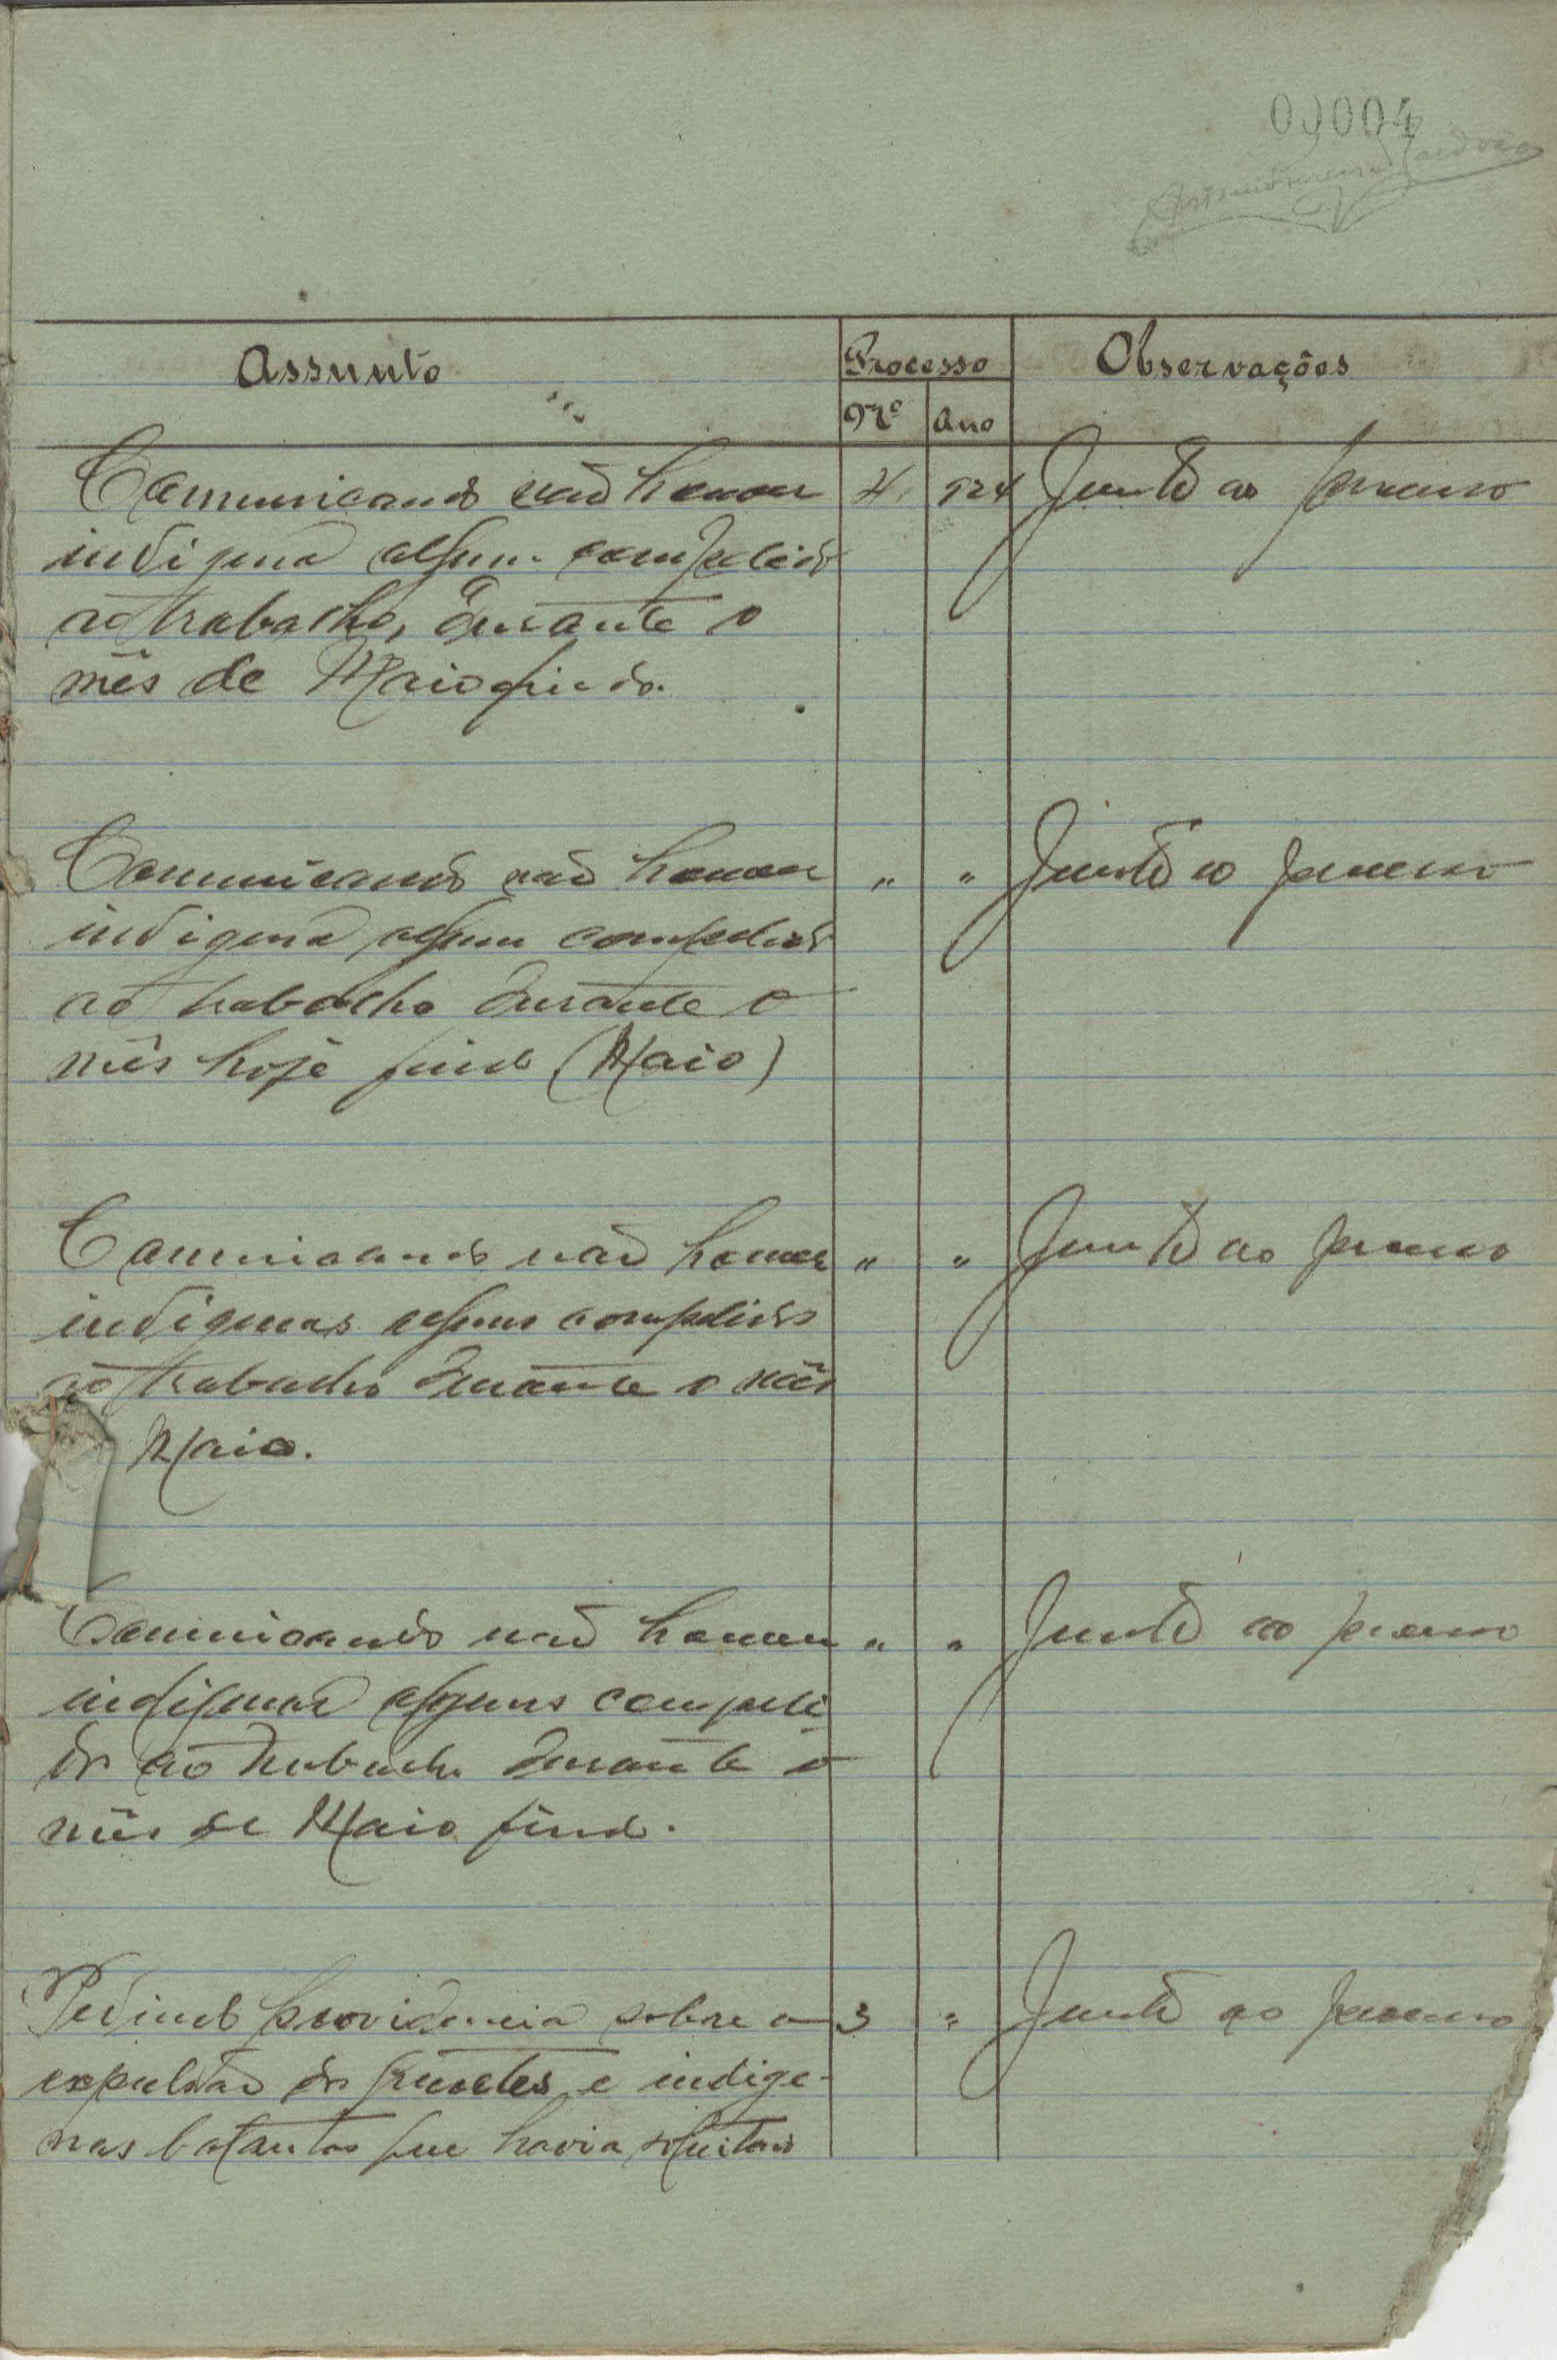 00004
Assunto
Processo
Observações
Nº
Ano
Comunicando não houve 4 924 Junto ao processo
indigena algum compelido
ao trabalho, durante o
mês de Maio findo.
Comunicando não houve " " Junto ao processo
indigena algum compelido
ao trabalho durante o
mês hoje findo (Maio)
Comunicando não houve " " Junto ao processo
indigenas alguns compelidos
ao trabalho durante o mês
Maio.
Comunicando não houve " " Junto ao processo
indigenas alguns compeli
dos ao trabalho durante o
mês de Maio findo.
Pedindo providencia sobre a 3 " Junto ao processo
expulsão dos e indige-
nas que havia